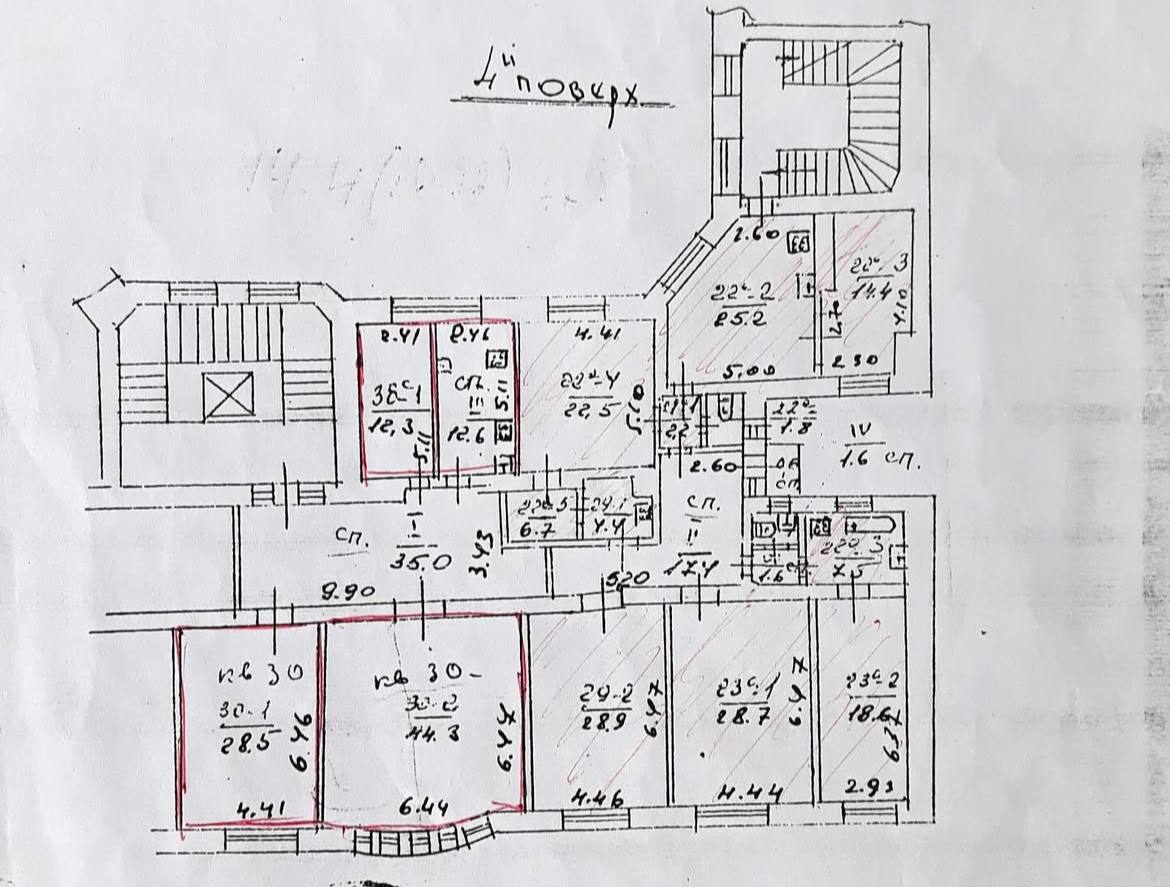 4й поверх
2.60
22а-2
25.2
14.4
2.70
4.10
5.00
2.30
2.41
2.46
4.41
12,3
5.11
сп.
III
12.6
5.11
22а-4
22,5
5.10
2.2
1.8
IV
1.6 сп.
2.60
сп.
II
17.4
6.7
4.4
сп.
I-1
35.0
3.43
9.90
5.20
1.6
7.5
кв 30
30-1
28.5
6.46
4.41
кв 30-
30-2
44.3
6.47
6.44
29-2
28.9
6.47
4.46
23с-1
28.7
6.47
4.44
23с-2
18.6
6.37
2.93